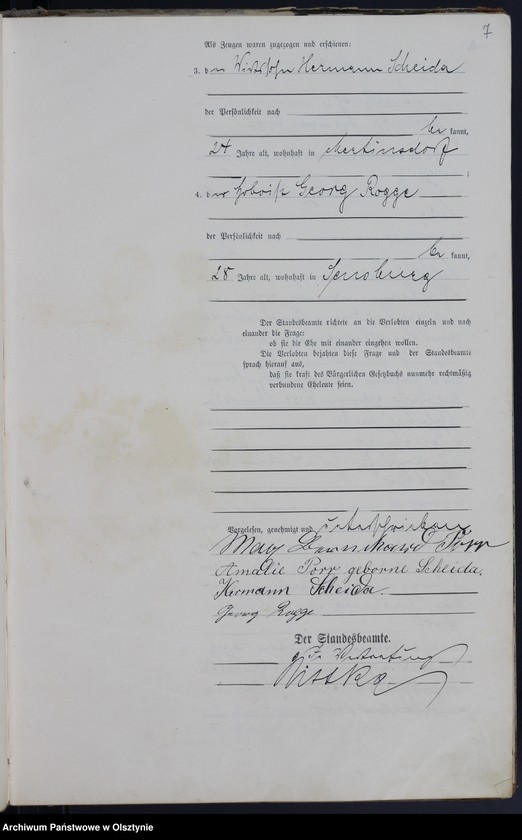 7
Als Zeugen waren zugezogen und erschienen:
3. der Wirtssohn Hermann Scheida
der Persönlichkeit nach
be kannt,
24 Jahre alt, wohnhaft in Mertinsdorf
;
4. der Hoboist Georg Rogge
der Persönlichkeit nach
be kannt,
28 Jahre alt, wohnhaft in Sensburg
Der Standesbeamte richtete an die Verlobten einzeln und nach
einander die Frage:
ob sie die Ehe mit einander eingehen wollen.
Die Verlobten bejahten diese Frage und der Standesbeamte
sprach hierauf aus,
daß sie kraft des Bürgerlichen Gesetzbuchs nunmehr rechtmäßig
verbundene Eheleute seien.
Vorgelesen, genehmigt und unterschrieben
Max Bernhard Porr
Amalie Porr geborne Scheida.
Hermann Scheida
Georg Rogge
Der Standesbeamte.
In Vertretung
Archiwum Państwowe w Olsztynie